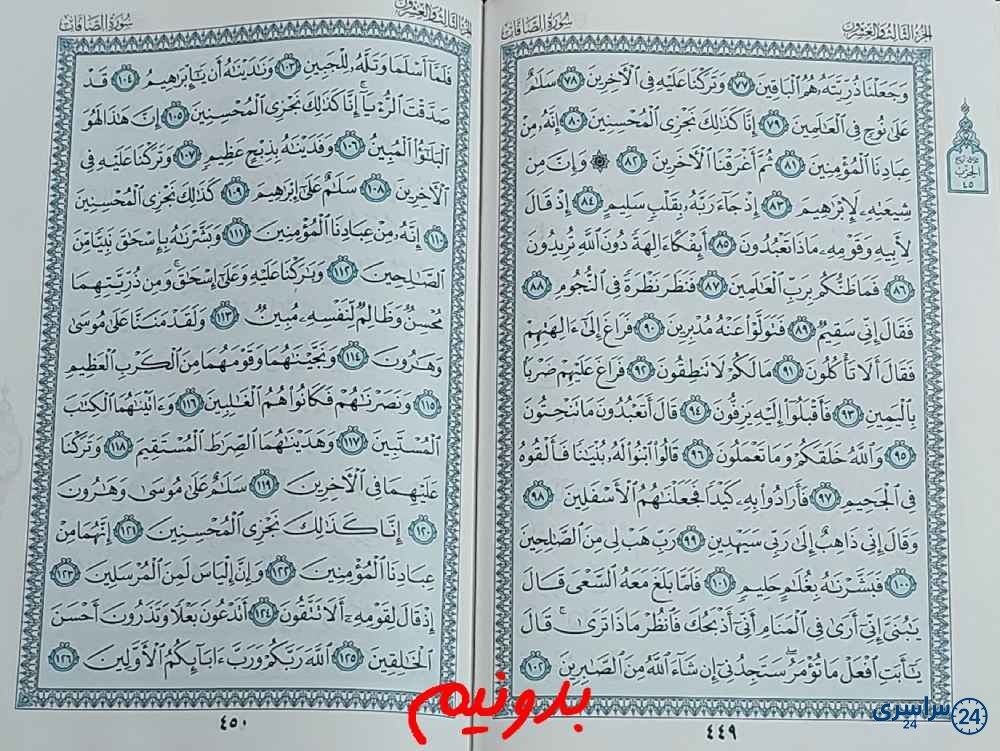 الجزء الثالث والعشرون
سورة الصافات
وَجَعَلْنَا ذُرِّيَّتَهُۥ هُمُ ٱلْبَاقِينَ ٧٧ وَتَرَكْنَا عَلَيْهِ فِى ٱلْـَٔاخِرِينَ ٧٨ سَلَـٰمٌ
عَلَىٰ نُوحٍ فِى ٱلْعَـٰلَمِينَ ٧٩ إِنَّا كَذَٰلِكَ نَجْزِى ٱلْمُحْسِنِينَ ٨٠ إِنَّهُۥ مِنْ
عِبَادِنَا ٱلْمُؤْمِنِينَ ٨١ ثُمَّ أَغْرَقْنَا ٱلْـَٔاخَرِينَ ٨٢ ۞ وَإِنَّ مِن
شِيعَتِهِۦ لَإِبْرَٰهِيمَ ٨٣ إِذْ جَآءَ رَبَّهُۥ بِقَلْبٍ سَلِيمٍ ٨٤ إِذْ قَالَ
لِأَبِيهِ وَقَوْمِهِۦ مَاذَا تَعْبُدُونَ ٨٥ أَئِفْكًا ءَالِهَةً دُونَ ٱللَّهِ تُرِيدُونَ
٨٦ فَمَا ظَنُّكُم بِرَبِّ ٱلْعَـٰلَمِينَ ٨٧ فَنَظَرَ نَظْرَةً فِى ٱلنُّجُومِ ٨٨
فَقَالَ إِنِّى سَقِيمٌ ٨٩ فَتَوَلَّوْا۟ عَنْهُ مُدْبِرِينَ ٩٠ فَرَاغَ إِلَىٰٓ ءَالِهَتِهِمْ
فَقَالَ أَلَا تَأْكُلُونَ ٩١ مَا لَكُمْ لَا تَنطِقُونَ ٩٢ فَرَاغَ عَلَيْهِمْ ضَرْبًۢا
بِٱلْيَمِينِ ٩٣ فَأَقْبَلُوٓا۟ إِلَيْهِ يَزِفُّونَ ٩٤ قَالَ أَتَعْبُدُونَ مَا تَنْحِتُونَ
٩٥ وَٱللَّهُ خَلَقَكُمْ وَمَا تَعْمَلُونَ ٩٦ قَالُوا۟ ٱبْنُوا۟ لَهُۥ بُنْيَـٰنًا فَأَلْقُوهُ
فِى ٱلْجَحِيمِ ٩٧ فَأَرَادُوا۟ بِهِۦ كَيْدًا فَجَعَلْنَـٰهُمُ ٱلْأَسْفَلِينَ ٩٨
وَقَالَ إِنِّى ذَاهِبٌ إِلَىٰ رَبِّى سَيَهْدِينِ ٩٩ رَبِّ هَبْ لِى مِنَ ٱلصَّـٰلِحِينَ
١٠٠ فَبَشَّرْنَـٰهُ بِغُلَـٰمٍ حَلِيمٍ ١٠١ فَلَمَّا بَلَغَ مَعَهُ ٱلسَّعْىَ قَالَ
يَـٰبُنَىَّ إِنِّىٓ أَرَىٰ فِى ٱلْمَنَامِ أَنِّىٓ أَذْبَحُكَ فَٱنظُرْ مَاذَا تَرَىٰ ۚ قَالَ
يَـٰٓأَبَتِ ٱفْعَلْ مَا تُؤْمَرُ ۖ سَتَجِدُنِىٓ إِن شَآءَ ٱللَّهُ مِنَ ٱلصَّـٰبِرِينَ ١٠٢
٤٤٩
الحزب
٤٥
الجزء الثالث والعشرون
سورة الصافات
فَلَمَّآ أَسْلَمَا وَتَلَّهُۥ لِلْجَبِينِ ١٠٣ وَنَـٰدَيْنَـٰهُ أَن يَـٰٓإِبْرَٰهِيمُ ١٠٤ قَدْ
صَدَّقْتَ ٱلرُّءْيَآ ۚ إِنَّا كَذَٰلِكَ نَجْزِى ٱلْمُحْسِنِينَ ١٠٥ إِنَّ هَـٰذَا لَهُوَ
ٱلْبَلَـٰٓؤُا۟ ٱلْمُبِينُ ١٠٦ وَفَدَيْنَـٰهُ بِذِبْحٍ عَظِيمٍ ١٠٧ وَتَرَكْنَا عَلَيْهِ فِى
ٱلْـَٔاخِرِينَ ١٠٨ سَلَـٰمٌ عَلَىٰٓ إِبْرَٰهِيمَ ١٠٩ كَذَٰلِكَ نَجْزِى ٱلْمُحْسِنِينَ
١١٠ إِنَّهُۥ مِنْ عِبَادِنَا ٱلْمُؤْمِنِينَ ١١١ وَبَشَّرْنَـٰهُ بِإِسْحَـٰقَ نَبِيًّا مِّنَ
ٱلصَّـٰلِحِينَ ١١٢ وَبَـٰرَكْنَا عَلَيْهِ وَعَلَىٰٓ إِسْحَـٰقَ ۚ وَمِن ذُرِّيَّتِهِمَا
مُحْسِنٌ وَظَالِمٌ لِّنَفْسِهِۦ مُبِينٌ ١١٣ وَلَقَدْ مَنَنَّا عَلَىٰ مُوسَىٰ
وَهَـٰرُونَ ١١٤ وَنَجَّيْنَـٰهُمَا وَقَوْمَهُمَا مِنَ ٱلْكَرْبِ ٱلْعَظِيمِ
١١٥ وَنَصَرْنَـٰهُمْ فَكَانُوا۟ هُمُ ٱلْغَـٰلِبِينَ ١١٦ وَءَاتَيْنَـٰهُمَا ٱلْكِتَـٰبَ
ٱلْمُسْتَبِينَ ١١٧ وَهَدَيْنَـٰهُمَا ٱلصِّرَٰطَ ٱلْمُسْتَقِيمَ ١١٨ وَتَرَكْنَا
عَلَيْهِمَا فِى ٱلْـَٔاخِرِينَ ١١٩ سَلَـٰمٌ عَلَىٰ مُوسَىٰ وَهَـٰرُونَ
١٢٠ إِنَّا كَذَٰلِكَ نَجْزِى ٱلْمُحْسِنِينَ ١٢١ إِنَّهُمَا مِنْ
عِبَادِنَا ٱلْمُؤْمِنِينَ ١٢٢ وَإِنَّ إِلْيَاسَ لَمِنَ ٱلْمُرْسَلِينَ ١٢٣
إِذْ قَالَ لِقَوْمِهِۦٓ أَلَا تَتَّقُونَ ١٢٤ أَتَدْعُونَ بَعْلًا وَتَذَرُونَ أَحْسَنَ
ٱلْخَـٰلِقِينَ ١٢٥ ٱللَّهَ رَبَّكُمْ وَرَبَّ ءَابَآئِكُمُ ٱلْأَوَّلِينَ ١٢٦
٤٥٠
بدونیم
سراسری
24
24